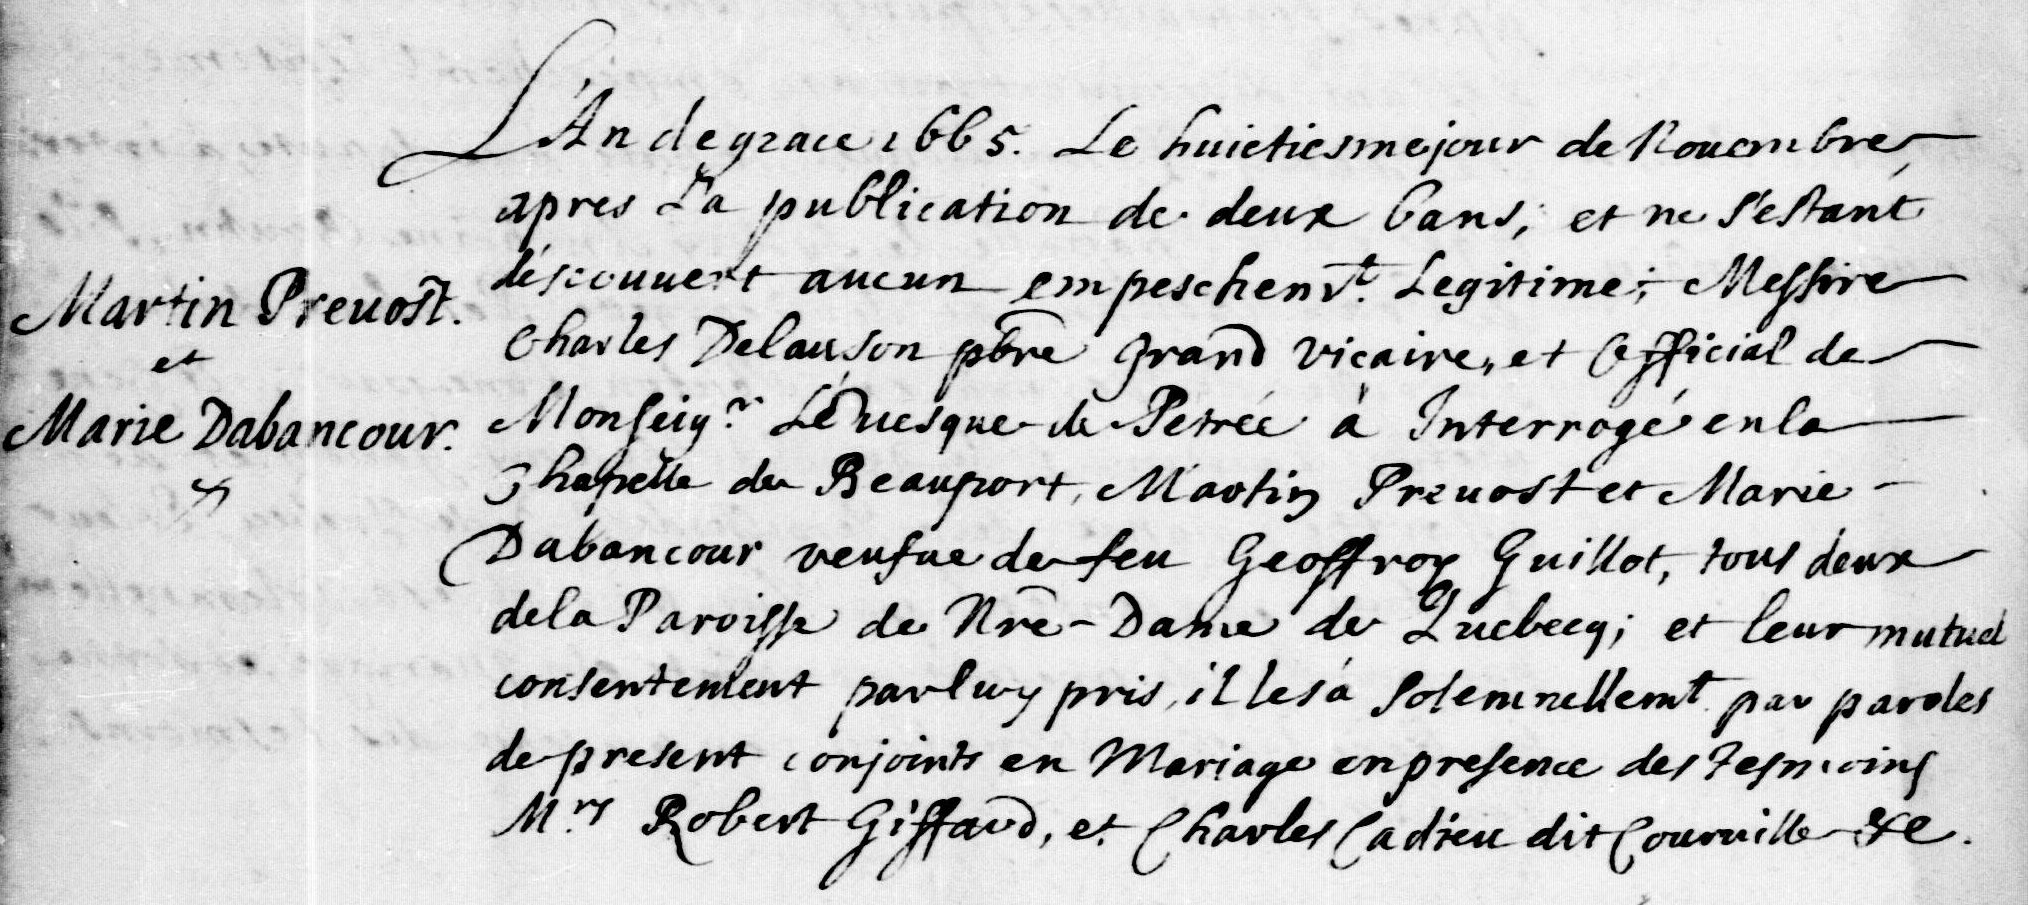 L'An de grace 1665. Le huictiesme jour de Nouembre
apres La publication de deux bans, et ne s'estant
descouuert aucun empeschem.t Legitime; Messire
Martin Preuost.
et
Marie Dabancour.
Charles Delauson pbre grand vicaire, et official de
Monseig.r L'Euesque de Petrée à Interrogé en la
Chapelle de Beauport, Martin Preuost et Marie
Dabancour veufue de feu Geoffroy Guillot, tous deux
de la Paroisse de Nre-Dame de Quebecq; et leur mutuel
consentement par luy pris, il les à solemnellemt par paroles
de present conjoints en Mariage en presence des tesmoins
M.rs Robert Giffard, et Charles Cadieu dit Couruille &c.